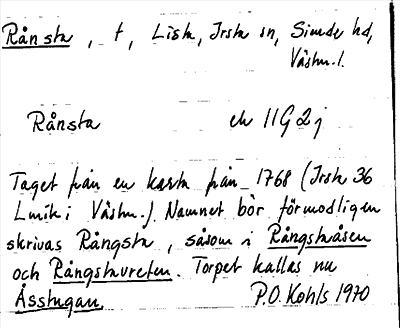 Rånsta, t, Lista, Irsta sn, Siende hd,
Västm. l.
Rånsta ek 11G2j
Taget från en karta från 1768 (Irsta 36
Lmik i Västm.). Namnet bör förmodligen
skrivas Rångsta, såsom i Rångstaåsen
och Rångstavreten. Torpet kallas nu
Åsstugan. P.O. Kohls 1970